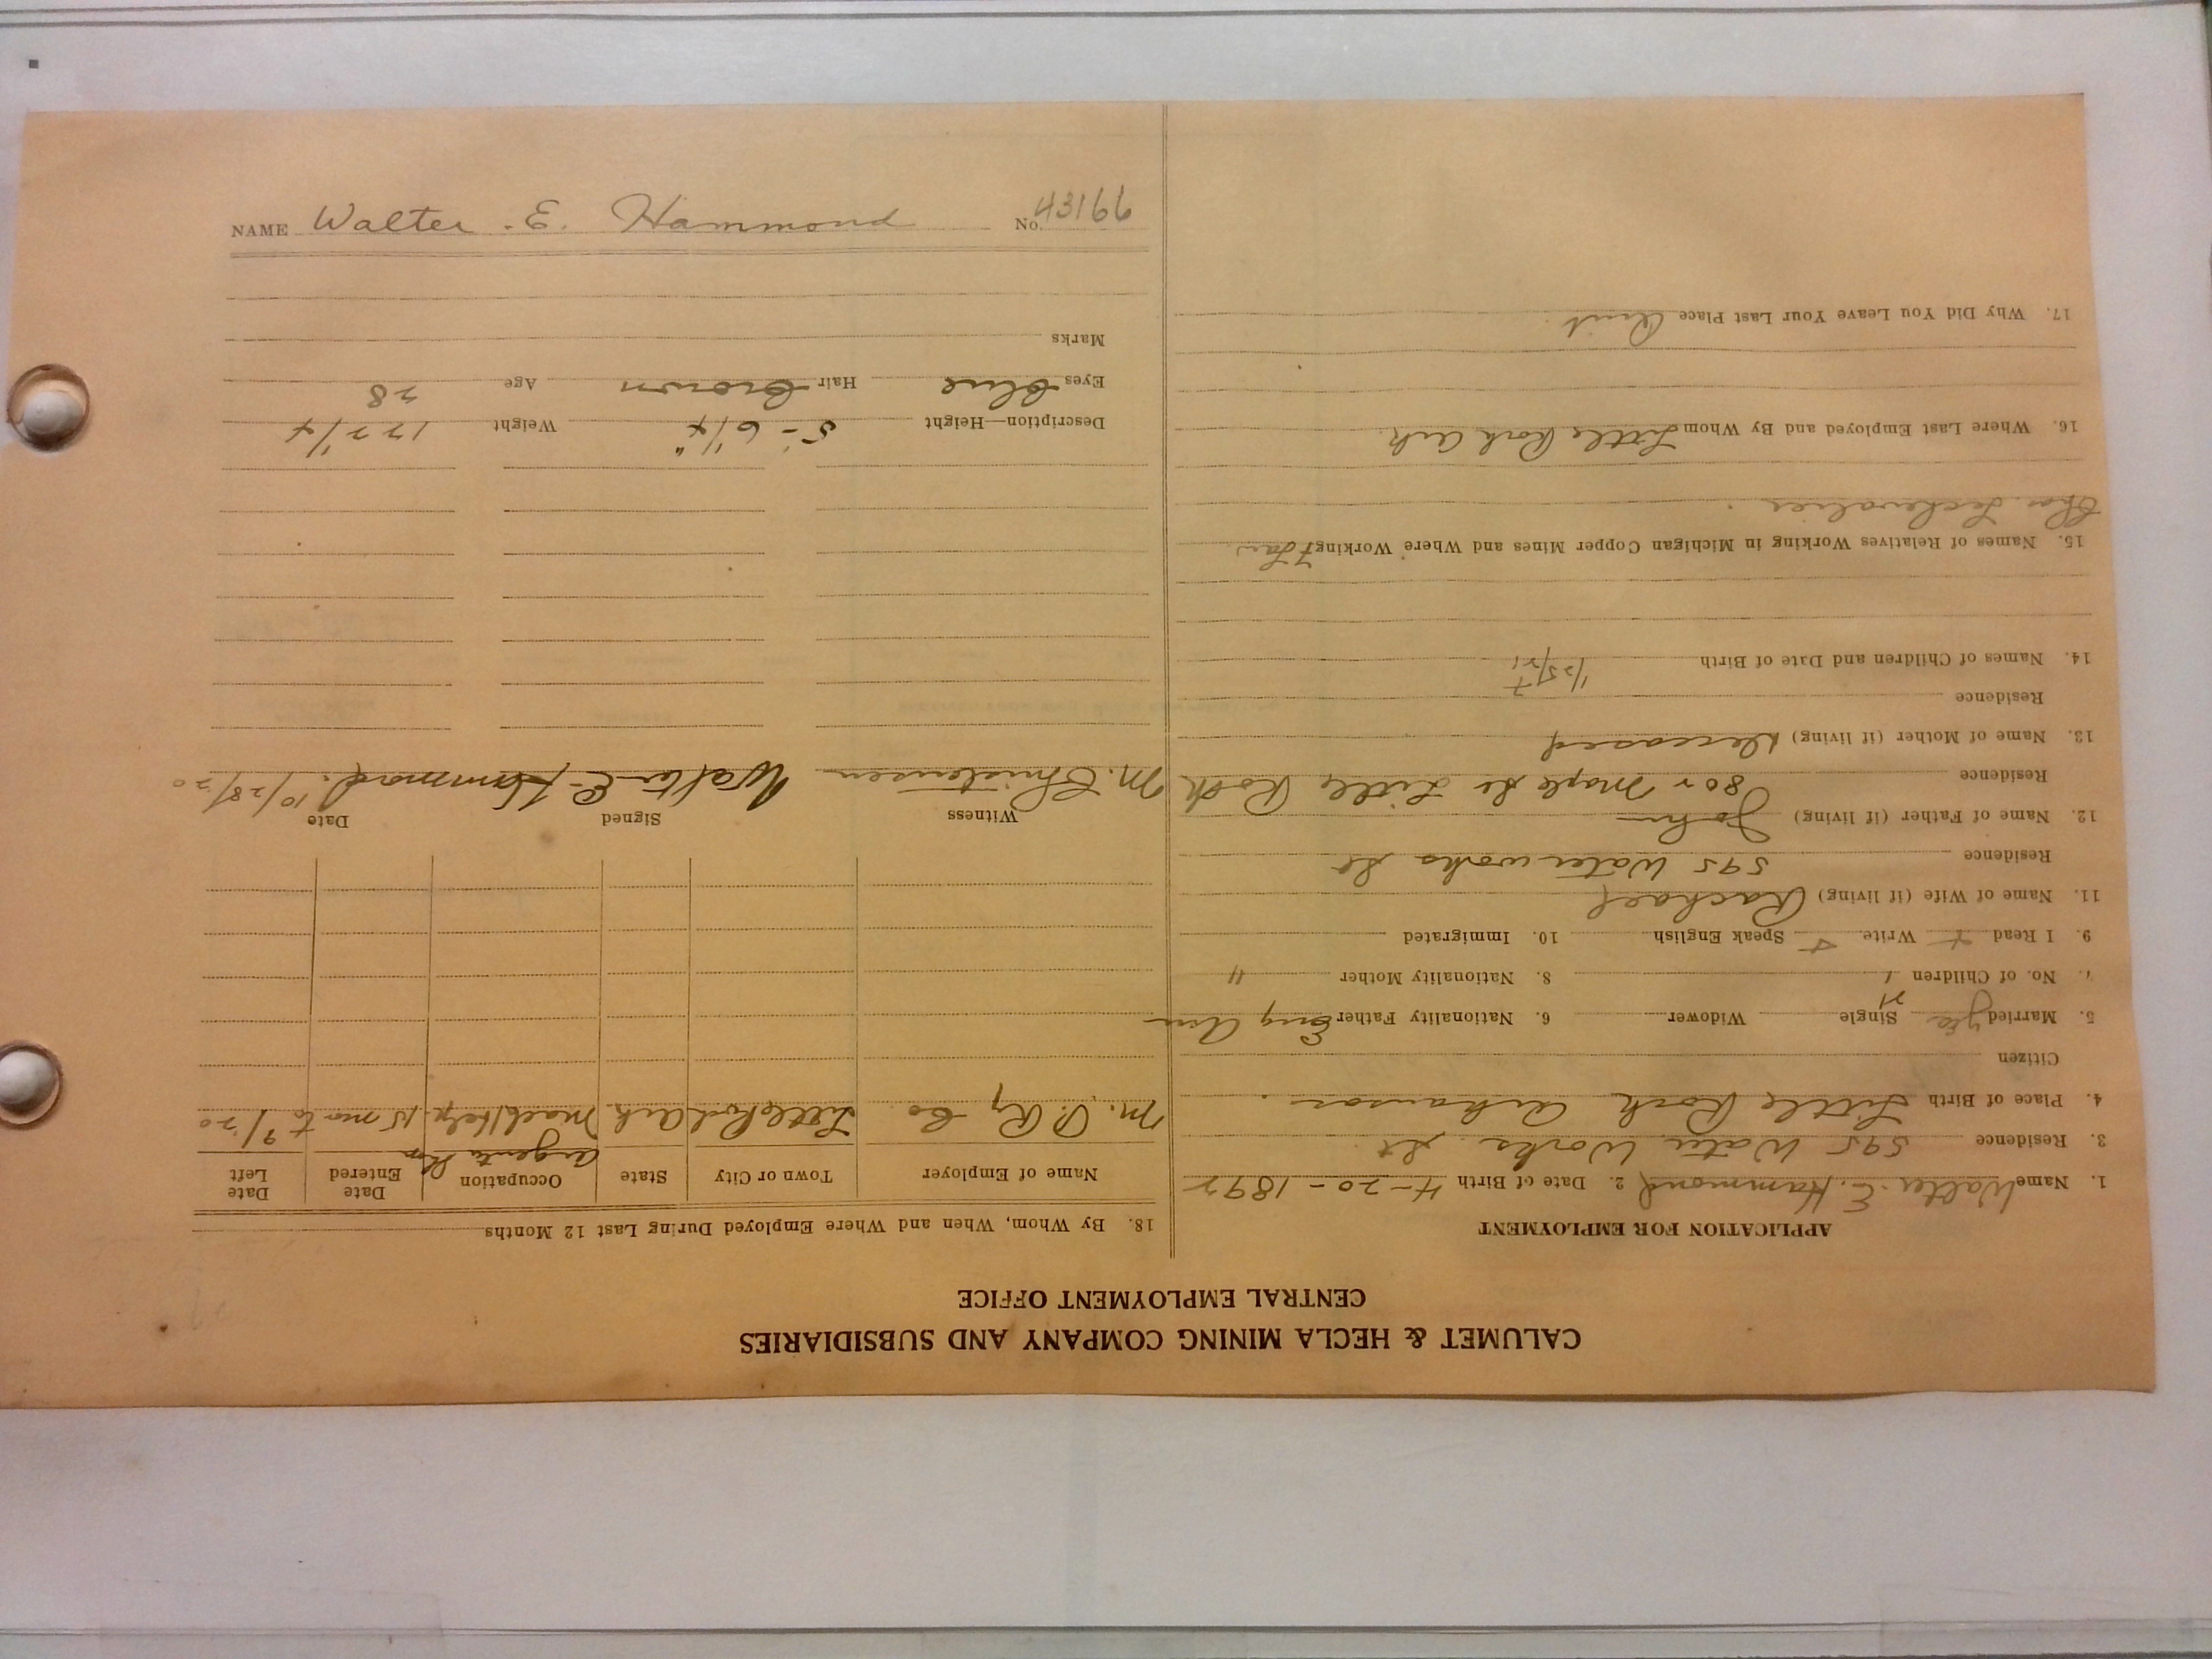 CALUMET & HECLA MINING COMPANY AND SUBSIDIARIES
CENTRAL EMPLOYMENT OFFICE
APPLICATION FOR EMPLOYMENT
1. Name Walter E. Hammond 2. Date of Birth 4-20-1892
3. Residence 595 Water Works St.
4. Place of Birth Little Rock Arkansas.
Citizen
5. Married yes Single Widower 6. Nationality Father Eng Am
7. No. of Children 1 8. Nationality Mother "
9. I Read + Write + Speak English 10. Immigrated
11. Name of Wife (if living) Rachael
Residence 595 Waterworks St
12. Name of Father (if living) John
Residence 802 Maple St Little Rock
13. Name of Mother (if living) Deceased
Residence
14. Names of Children and Date of Birth
15. Names of Relatives Working in Michigan Copper Mines and Where Working
Chas.
16. Where Last Employed and By Whom Little Rock Ark.
17. Why Did You Leave Your Last Place Quit
18. By Whom, When and Where Employed During Last 12 Months
Name of Employer Town or City State Occupation Date Entered Date Left
M. P. Ry Co. Little Rock Ark Mach Help. 15 mo to 9/20
Witness Signed Date
M. Christensen Walter E. Hammond. 10/28/20
Description—Height 5-6 1/4" Weight 122 1/4
Eyes Blue Hair Brown Age 28
Marks
NAME Walter E. Hammond No. 43166